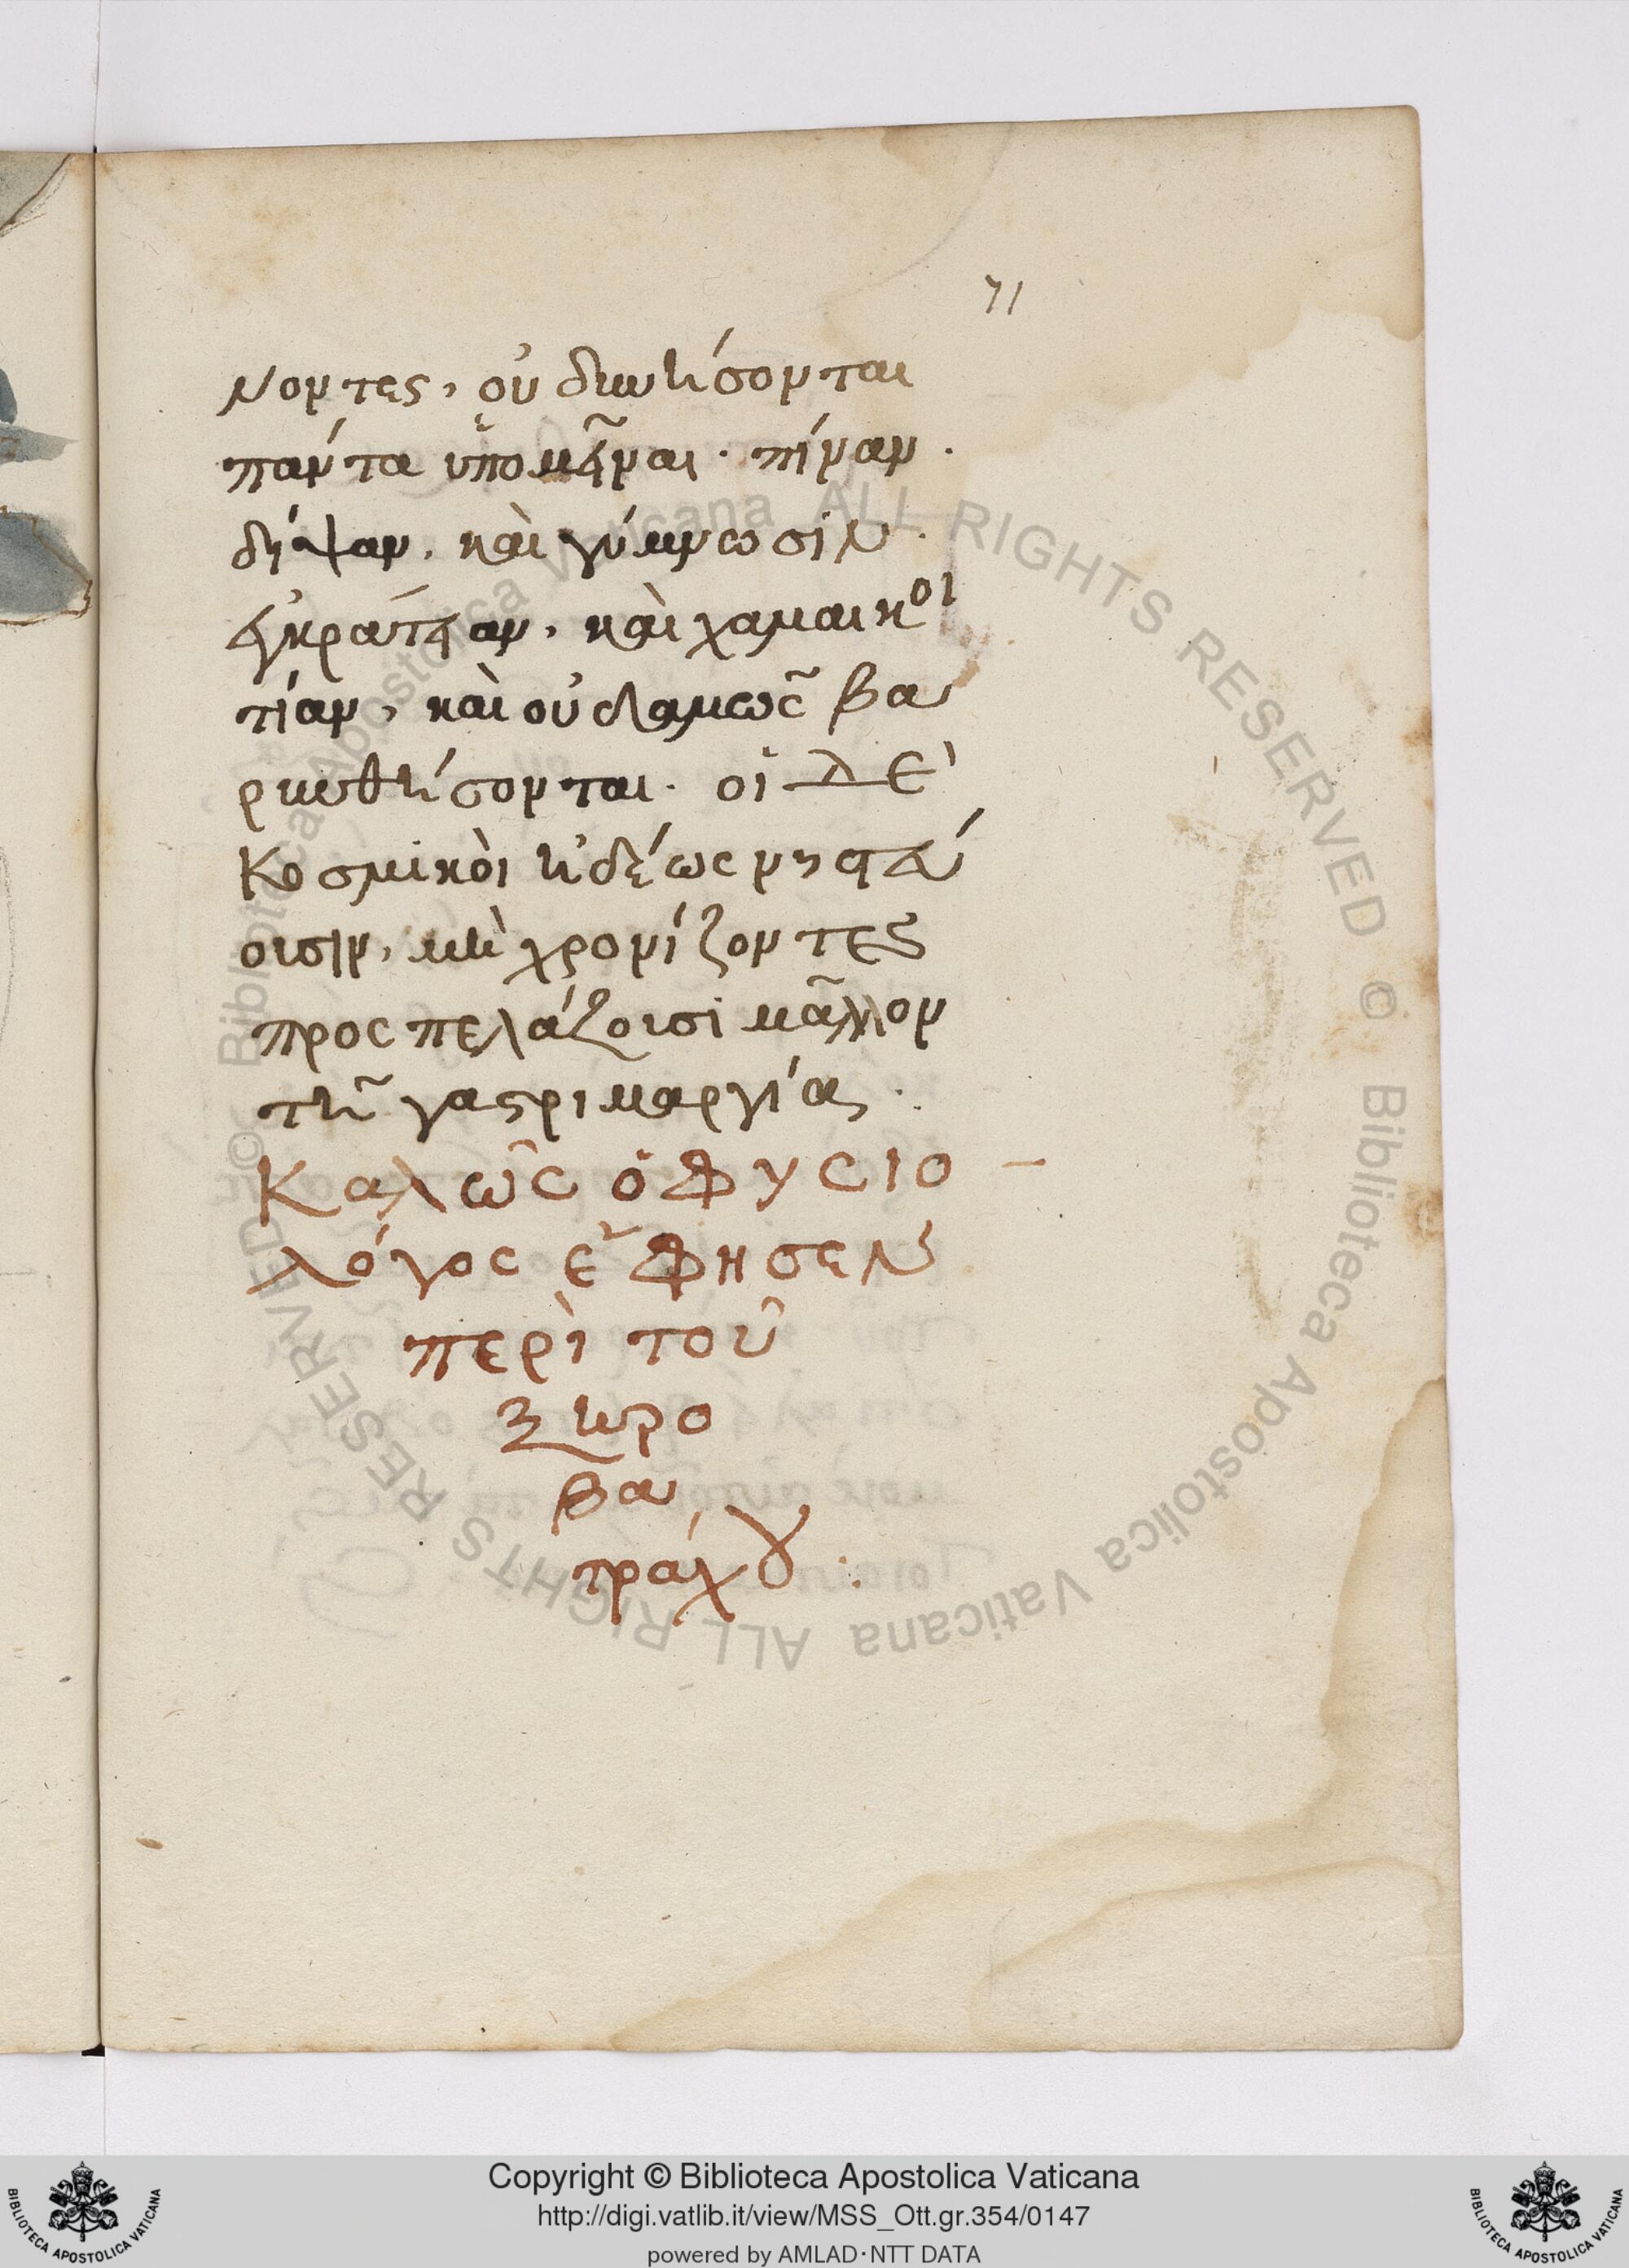 71
νοντες, οὐ δυνήσονται
πάντα ὑπομεῖναι· πίναν·
δήψαν, καὶ γύμνωσιν·
ἐγκράτειαν, καὶ χαμαικοι
τίαν, καὶ οὐδαμῶς βα
ρυνθήσονται· οἱ ΔΕ
Κοσμικοὶ ἡδέως νηστεύ
ουσιν, μὴ χρονίζοντες
προςπελάζουσι μᾶλλον
τῆ γαστριμαργίας·
Καλῶς ὁ Φυσιο
λόγος ἔφησεν
περὶ τοῦ
ξηρο
βα
τράχου :
Copyright © Biblioteca Apostolica Vaticana
http://digi.vatlib.it/view/MSS_Ott.gr.354/0147
powered by AMLAD·NTT DATA
BIBLIOTECA APOSTOLICA VATICANA
BIBLIOTECA APOSTOLICA VATICANA
© Biblioteca Apostolica Vaticana ALL RIGHTS RESERVED
© Biblioteca Apostolica Vaticana ALL RIGHTS RESERVED